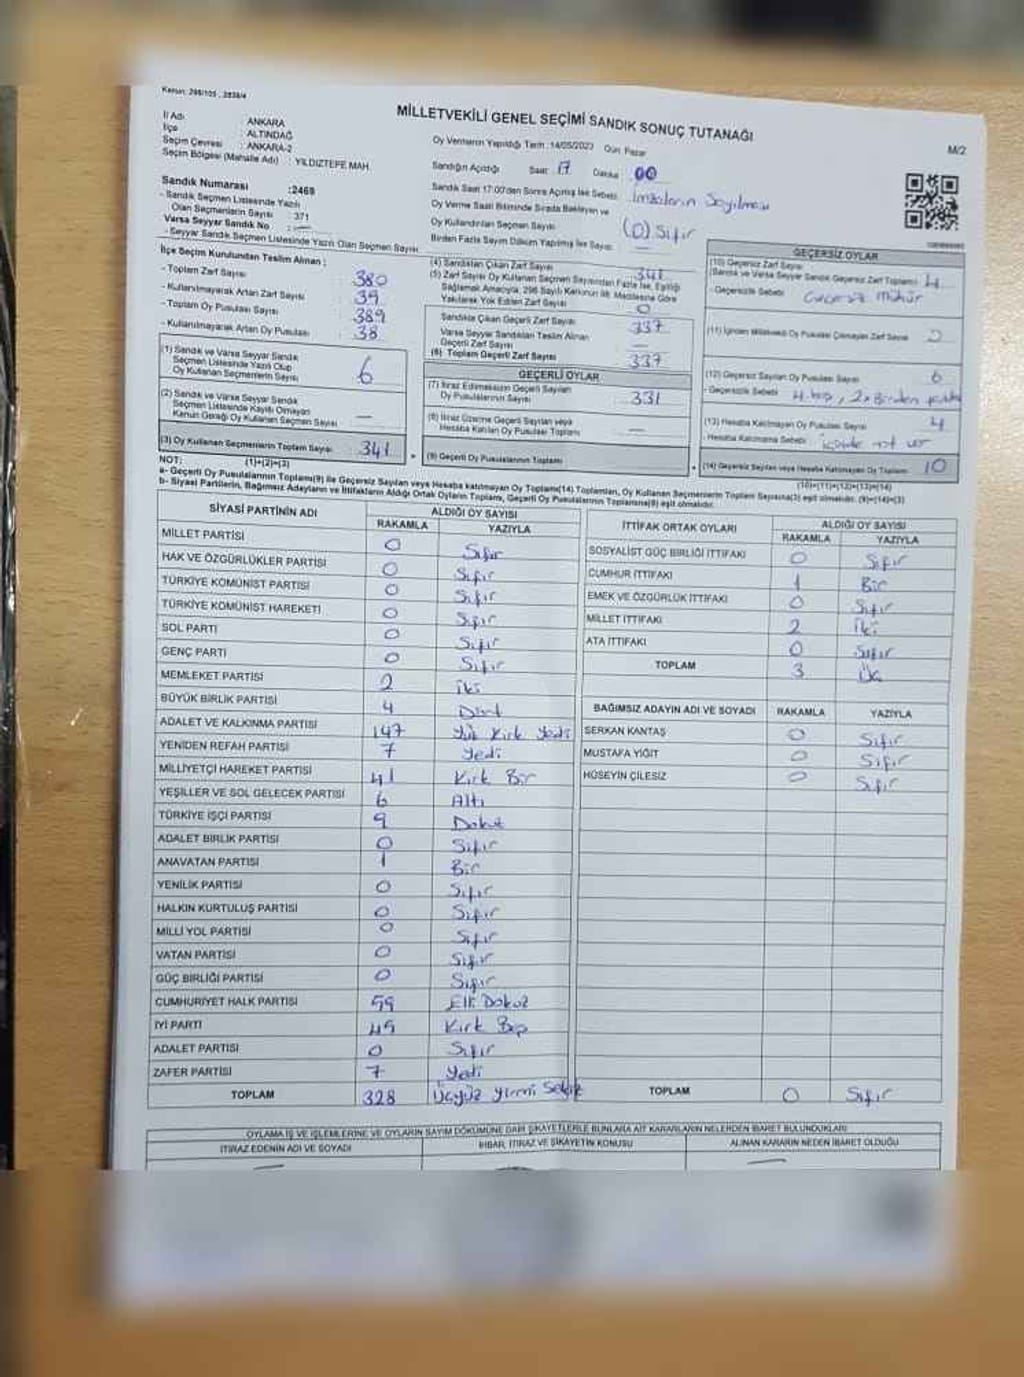 Kanun: 298/105 , 2839/4
MİLLETVEKİLİ GENEL SEÇİMİ SANDIK SONUÇ TUTANAĞI
M/2
İl Adı : ANKARA
İlçe : ALTINDAĞ
Seçim Çevresi : ANKARA-2
Seçim Bölgesi (Mahalle Adı) : YILDIZTEPE MAH.
Oy Vermenin Yapıldığı Tarih : 14/05/2023 Gün: Pazar
Sandığın Açıldığı Saat: 17 Dakika: 00
Sandık Saat 17:00'den Sonra Açılmış İse Sebebi: İmzaların Sayılması
Oy Verme Saati Bitiminde Sırada Bekleyen ve
Oy Kullandırılan Seçmen Sayısı (0) Sıfır
Birden Fazla Sayım Döküm Yapılmış İse Sayısı: —
Sandık Numarası :2469
- Sandık Seçmen Listesinde Yazılı
Olan Seçmenlerin Sayısı : 371
Varsa Seyyar Sandık No : —
- Seyyar Sandık Seçmen Listesinde Yazılı Olan Seçmen Sayısı
İlçe Seçim Kurulundan Teslim Alınan :
- Toplam Zarf Sayısı : 380
- Kullanılmayarak Artan Zarf Sayısı : 39
- Toplam Oy Pusulası Sayısı : 389
- Kullanılmayarak Artan Oy Pusulası : 38
(1) Sandık ve Varsa Seyyar Sandık
Seçmen Listesinde Yazılı Olup
Oy Kullanan Seçmenlerin Sayısı 6
(2) Sandık ve Varsa Seyyar Sandık
Seçmen Listesinde Kayıtlı Olmayan
Kanun Gereği Oy Kullanan Seçmen Sayısı —
(3) Oy Kullanan Seçmenlerin Toplam Sayısı 341
(1)+(2)=(3)
(4) Sandıktan Çıkan Zarf Sayısı 341
(5) Zarf Sayısı Oy Kullanan Seçmen Sayısından Fazla İse, Eşitliği
Sağlamak Amacıyla, 298 Sayılı Kanunun 98. Maddesine Göre
Yakılarak Yok Edilen Zarf Sayısı 0
Sandıkta Çıkan Geçerli Zarf Sayısı 337
Varsa Seyyar Sandıktan Teslim Alınan
Geçerli Zarf Sayısı —
(6) Toplam Geçerli Zarf Sayısı 337
GEÇERLİ OYLAR
(7) İtiraz Edilmeksizin Geçerli Sayılan
Oy Pusulalarının Sayısı 331
(8) İtiraz Üzerine Geçerli Sayılan veya
Hesaba Katılan Oy Pusulası Toplamı —
(9) Geçerli Oy Pusulalarının Toplamı
GEÇERSİZ OYLAR
(10) Geçersiz Zarf Sayısı
(Sandık ve Varsa Seyyar Sandık Geçersiz Zarf Toplamı) 4
- Geçersizlik Sebebi : Geçersiz Mühür
(11) İçinden Milletvekili Oy Pusulası Çıkmayan Zarf Sayısı
(12) Geçersiz Sayılan Oy Pusulası Sayısı 6
- Geçersizlik Sebebi : 4 boş, 2x Birden
(13) Hesaba Katılmayan Oy Pusulası Sayısı 4
- Hesaba Katılmama Sebebi : içinde not var
(14) Geçersiz Sayılan veya Hesaba Katılmayan Oy Toplamı 10
(10)+(11)+(12)+(13)=(14)
NOT:
a- Geçerli Oy Pusulalarının Toplamı(9) ile Geçersiz Sayılan veya Hesaba katılmayan Oy Toplamı(14) Toplamları, Oy Kullanan Seçmenlerin Toplam Sayısına(3) eşit olmalıdır. (9)+(14)=(3)
b- Siyasi Partilerin, Bağımsız Adayların ve İttifakların Aldığı Ortak Oyların Toplamı, Geçerli Oy Pusulalarının Toplamına(9) eşit olmalıdır.
SİYASİ PARTİNİN ADI ALDIĞI OY SAYISI
RAKAMLA YAZIYLA
MİLLET PARTİSİ 0 Sıfır
HAK VE ÖZGÜRLÜKLER PARTİSİ 0 Sıfır
TÜRKİYE KOMÜNİST PARTİSİ 0 Sıfır
TÜRKİYE KOMÜNİST HAREKETİ 0 Sıfır
SOL PARTİ 0 Sıfır
GENÇ PARTİ 0 Sıfır
MEMLEKET PARTİSİ 2 iki
BÜYÜK BİRLİK PARTİSİ 4 Dört
ADALET VE KALKINMA PARTİSİ 147 Yüz Kırk Yedi
YENİDEN REFAH PARTİSİ 7 Yedi
MİLLİYETÇİ HAREKET PARTİSİ 41 Kırk Bir
YEŞİLLER VE SOL GELECEK PARTİSİ 6 Altı
TÜRKİYE İŞÇİ PARTİSİ 9 Dokuz
ADALET BİRLİK PARTİSİ 0 Sıfır
ANAVATAN PARTİSİ 1 Bir
YENİLİK PARTİSİ 0 Sıfır
HALKIN KURTULUŞ PARTİSİ 0 Sıfır
MİLLİ YOL PARTİSİ 0 Sıfır
VATAN PARTİSİ 0 Sıfır
GÜÇ BİRLİĞİ PARTİSİ 0 Sıfır
CUMHURİYET HALK PARTİSİ 59 Elli Dokuz
İYİ PARTİ 45 Kırk Beş
ADALET PARTİSİ 0 Sıfır
ZAFER PARTİSİ 7 Yedi
TOPLAM 328 Üçyüz Yirmi Sekiz
İTTİFAK ORTAK OYLARI ALDIĞI OY SAYISI
RAKAMLA YAZIYLA
SOSYALİST GÜÇ BİRLİĞİ İTTİFAKI 0 Sıfır
CUMHUR İTTİFAKI 1 Bir
EMEK VE ÖZGÜRLÜK İTTİFAKI 0 Sıfır
MİLLET İTTİFAKI 2 İki
ATA İTTİFAKI 0 Sıfır
TOPLAM 3 Üç
BAĞIMSIZ ADAYIN ADI VE SOYADI RAKAMLA YAZIYLA
SERKAN KANTAŞ 0 Sıfır
MUSTAFA YİĞİT 0 Sıfır
HÜSEYİN ÇİLESİZ 0 Sıfır
TOPLAM 0 Sıfır
OYLAMA İŞ VE İŞLEMLERİNE VE OYLARIN SAYIM DÖKÜMÜNE DAİR ŞİKAYETLERLE BUNLARA AİT KARARLARIN NELERDEN İBARET BULUNDUKLARI
İTİRAZ EDENİN ADI VE SOYADI İHBAR, İTİRAZ VE ŞİKAYETİN KONUSU ALINAN KARARIN NEDEN İBARET OLDUĞU